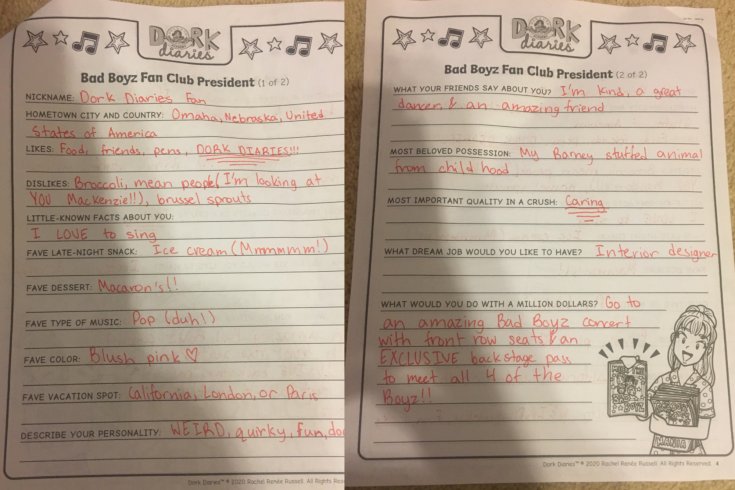 DORK
diaries
Bad Boyz Fan Club President (1 of 2)
NICKNAME: Dork Diaries Fan
HOMETOWN CITY AND COUNTRY: Omaha, Nebraska, United
States of America
LIKES: Food, friends, pens, DORK DIARIES!!!
DISLIKES: Broccoli, mean people (I'm looking at
YOU Mackenzie!!), brussel sprouts
LITTLE-KNOWN FACTS ABOUT YOU:
I LOVE to sing
FAVE LATE-NIGHT SNACK: Ice cream (Mmmmmm!)
FAVE DESSERT: Macaron's!!
FAVE TYPE OF MUSIC: Pop (duh!)
FAVE COLOR: Blush pink ♡
FAVE VACATION SPOT: California, London, or Paris
DESCRIBE YOUR PERSONALITY: WEIRD, quirky, fun,
Dork Diaries™ © 2020 Rachel Renée Russell. All Rights Res
DORK
diaries
Bad Boyz Fan Club President (2 of 2)
WHAT YOUR FRIENDS SAY ABOUT YOU? I'm kind, a great
dancer, & an amazing friend
MOST BELOVED POSSESSION: My Barney stuffed animal
from childhood
MOST IMPORTANT QUALITY IN A CRUSH: Caring
WHAT DREAM JOB WOULD YOU LIKE TO HAVE? Interior designer
WHAT WOULD YOU DO WITH A MILLION DOLLARS? Go to
an amazing Bad Boyz concert
with front row seats & an
EXCLUSIVE backstage pass
to meet all 4 of the
Boyz!!
Dork Diaries™ © 2020 Rachel Renée Russell. All Rights Reserved. 4